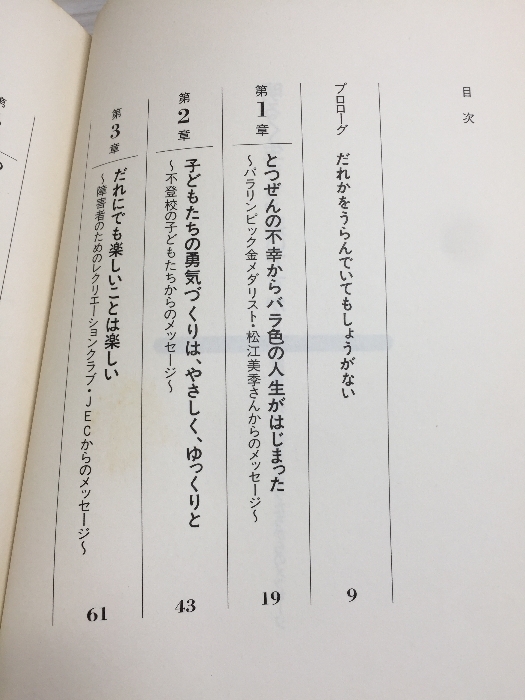 目次
プロローグ
だれかをうらんでいてもしょうがない
9
第1章
とつぜんの不幸からバラ色の人生がはじまった
〜パラリンピック金メダリスト・松江美季さんからのメッセージ〜
19
第2章
子どもたちの勇気づくりは、やさしく、ゆっくりと
〜不登校の子どもたちからのメッセージ〜
43
第3章
だれにでも楽しいことは楽しい
〜障害者のためのレクリエーションクラブ・JECからのメッセージ〜
61